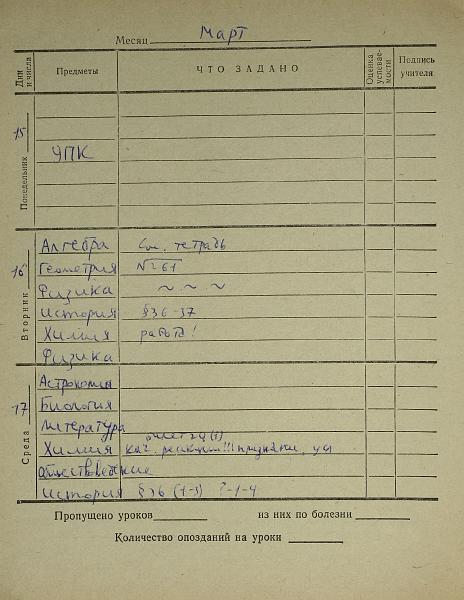 Месяц Март
Дни и числа Предметы ЧТО ЗАДАНО Оценка успевае-мости Подпись учителя
Понедельник 15
УПК
Вторник 16
Алгебра См. тетрадь
Геометрия №261
Физика ~ ~ ~
История §36-37
Химия работа!
Физика
Среда 17
Астрономия
Биология
Литература
Химия кач. реакции!!! признаки, ур
Обществоведение
История §36 (1-3) ?-1-4
Пропущено уроков из них по болезни
Количество опозданий на уроки